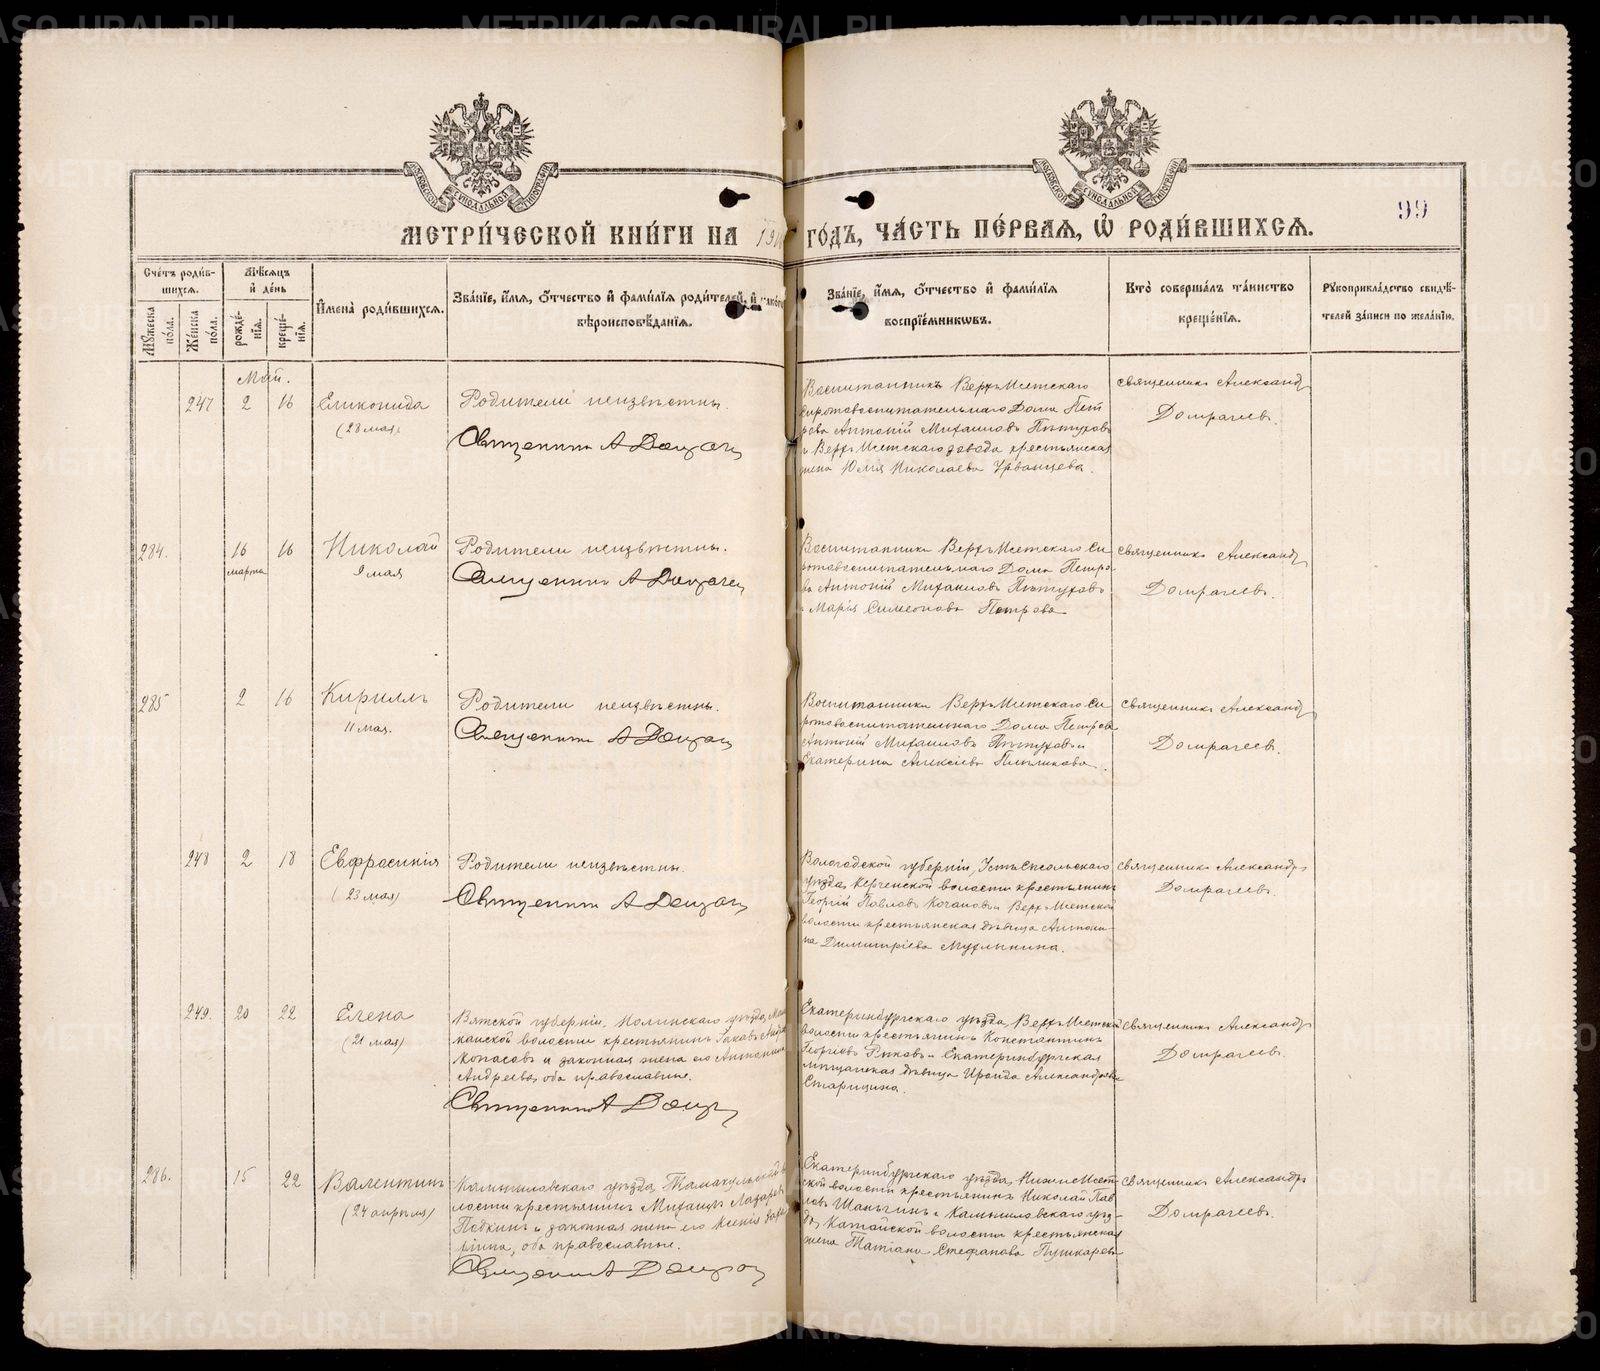 МОСКОВСКОЙ СУНОДАЛЬНОЙ ТИПОГРАФІИ
МОСКОВСКОЙ СУНОДАЛЬНОЙ ТИПОГРАФІИ
99
МЕТРИ́ЧЕСКОЙ КНИ́ГИ НА 19 ГО́ДЪ, ЧА́СТЬ ПЕ́РВАЯ, Ѡ РОДИ́ВШИХСЯ.
Сче́тъ роди́в-
шихся.
Мꙋжеска по́ла.
Же́нска по́ла.
Мѣ́сяцъ и҆ де́нь
рожде́-
нїя.
креще́-
нїя.
И҆мена̀ роди́вшихся.
Зва́нїе, и҆́мя, ѻ҆́тчество и҆ фами́лїя роди́телей, и҆ како́гѡ
вѣроисповѣ́данїя.
Зва́нїе, и҆́мя, ѻ҆́тчество и҆ фами́лїя
воспрїе́мникѡвъ.
Кто̀ соверша́лъ та́инство
креще́нїя.
Рꙋкоприкла́дство свидѣ́-
телей за́писи по жела́нїю.
Май.
247
2
16
Еликонида
(28 мая)
Родители неизвѣстны.
Священникъ А Домрачев
Воспитанникъ Верхъ-Исетскаго
сиротовоспитательнаго Дома Пет
рова Антоній Михаиловъ Пѣтуховъ
и Верхъ-Исетскаго завода крестьянская
жена Юлія Николаева Урванцева.
священникъ Александръ
Домрачевъ.
284.
16
марта
16
Николай
9 мая
Родители неизвѣстны.
Священникъ А Домрачев
Воспитанники Верхъ-Исетскаго Си
ротовоспитательнаго Дома Петро
ва Антоній Михаиловъ Пѣтуховъ
и Марія Симеонова Петрова
священникъ Александръ
Домрачевъ.
285
2
16
Кириллъ
11 мая.
Родители неизвѣстны.
Священникъ А Домрачев
Воспитанники Верхъ-Исетскаго Си
ротовоспитательнаго Дома Петрова
Антоній Михаиловъ Пѣтуховъ и
Екатерина Алексѣева
священникъ Александръ
Домрачевъ.
248
2
18
Евфросинія
(23 мая)
Родители неизвѣстны.
Священникъ А Домрачев
Вологодской губерніи, Устьсысольскаго
уѣзда, Керчевской волости крестьянинъ
Георгій Павловъ Качановъ и Верхъ-Исетской
волости крестьянская дѣвица Антони-
на Димитріева Мухлынина.
священникъ Александръ
Домрачевъ.
249.
20
22
Елена
(21 мая)
Вятской губерніи, Нолинскаго уѣзда,
волости крестьянинъ Іаковъ
Копасовъ и законная жена его Антонина
Андреева, оба православные.
Священникъ А Домрач
Екатеринбургскаго уѣзда, Верхъ-Исетской
волости крестьянинъ Константинъ
Георгіевъ Рыковъ и Екатеринбургская
мѣщанская дѣвица Ираида Александрова
Старицина.
священникъ Александръ
Домрачевъ.
286.
15
22
Валентинъ
(24 апрѣля)
Камышловскаго уѣзда, Тамакульской во
лости крестьянинъ Михаилъ Лазаревъ
Пѣдкинъ и законная жена его Ксенія
оба православные.
Священникъ А Домрач
Екатеринбургскаго уѣзда, Нижне-Исет-
ской волости крестьянинъ Николай Пав
ловъ Шаньгинъ и Камышловскаго уѣз-
да, Катайской волости крестьянская
жена Татіана Стефанова Пушкарева
священникъ Александръ
Домрачевъ.
METRIKI.GASO-URAL.RU